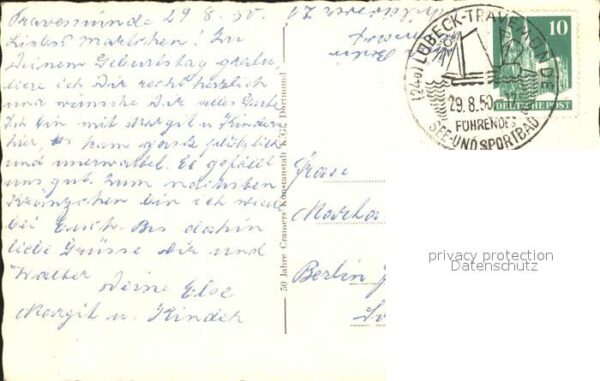 Travemünde 29.8.50.
Liebes Mariechen! Zu
Deinem Geburtstag gratu-
liere ich Dir recht herzlich
und wünsche Dir alles Gute
Ich bin mit Margit u. Kindern
hier, es kam ganz plötzlich
und unerwartet. Es gefällt
uns gut. Zum nächsten
Kränzchen bin ich wieder
bei Euch. Bis dahin
liebe Grüsse Dir und
Walter Deine Else
Margit u. Kinder
50 Jahre Cramers Kunstanstalt KG., Dortmund
(24a) LÜBECK-TRAVEMÜNDE
29.8.50
FÜHRENDES
SEE- UND SPORTBAD
10
DEUTSCHE POST
Frau
Martha
Berlin
privacy protection
Datenschutz